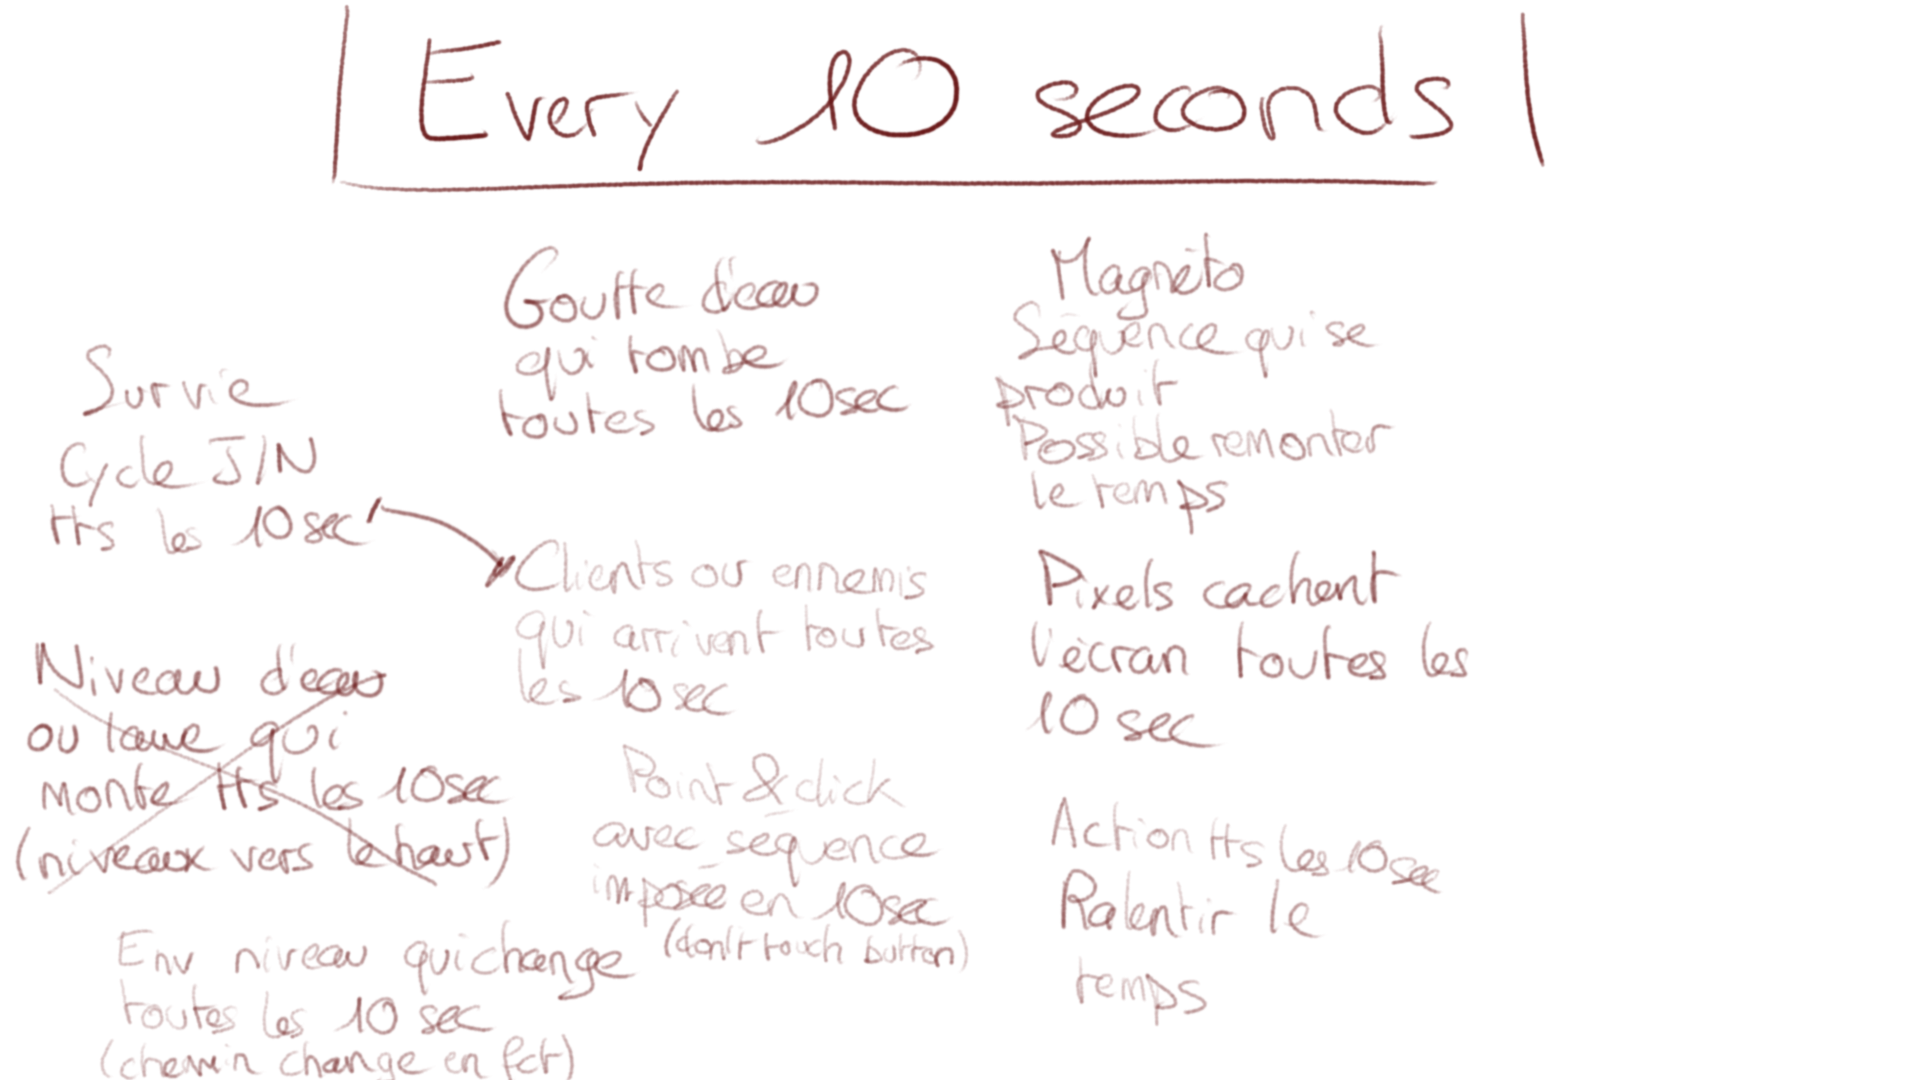 Every 10 seconds
Survie
Cycle J/N
tts les 10sec
Niveau d'eau
ou lave qui
monte tts les 10sec
(niveaux vers le haut)
Env niveau qui change
toutes les 10 sec
(chemin change en fct)
Goutte d'eau
qui tombe
toutes les 10sec
Clients ou ennemis
qui arrivent toutes
les 10 sec
Point & click
avec séquence
imposée en 10sec
(don't touch button)
Magnéto
Séquence qui se
produit
Possible remonter
le temps
Pixels cachent
l'écran toutes les
10 sec
Action tts les 10sec
Ralentir le
temps